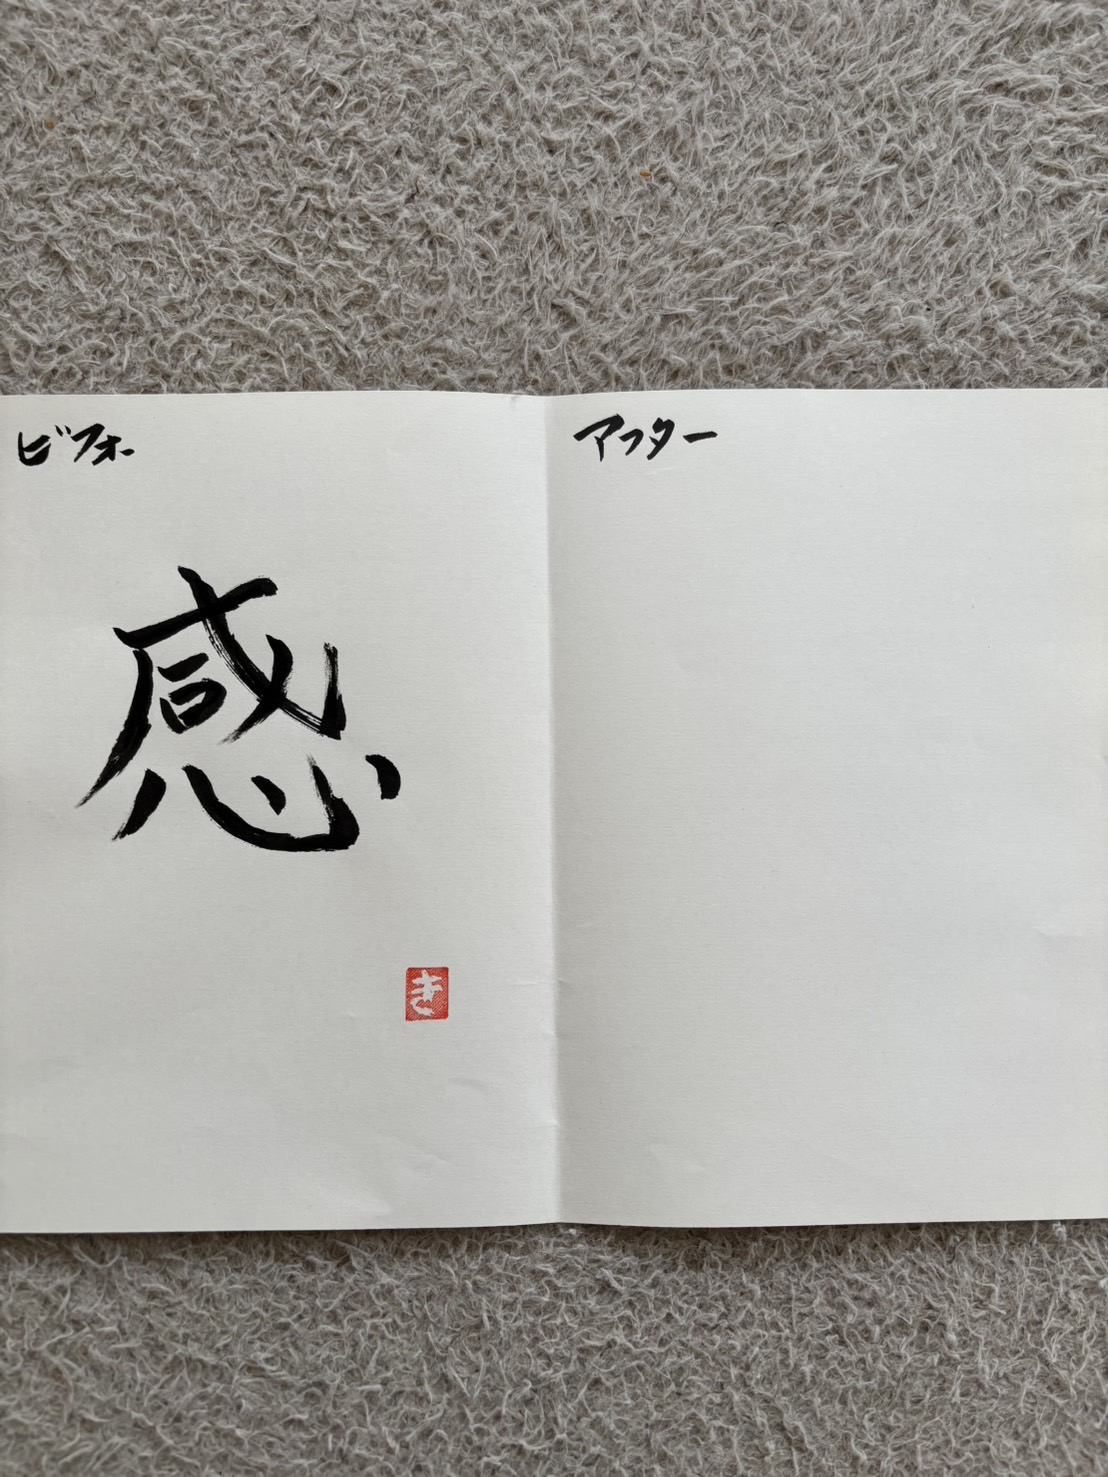 ビフォー
アフター
感
き